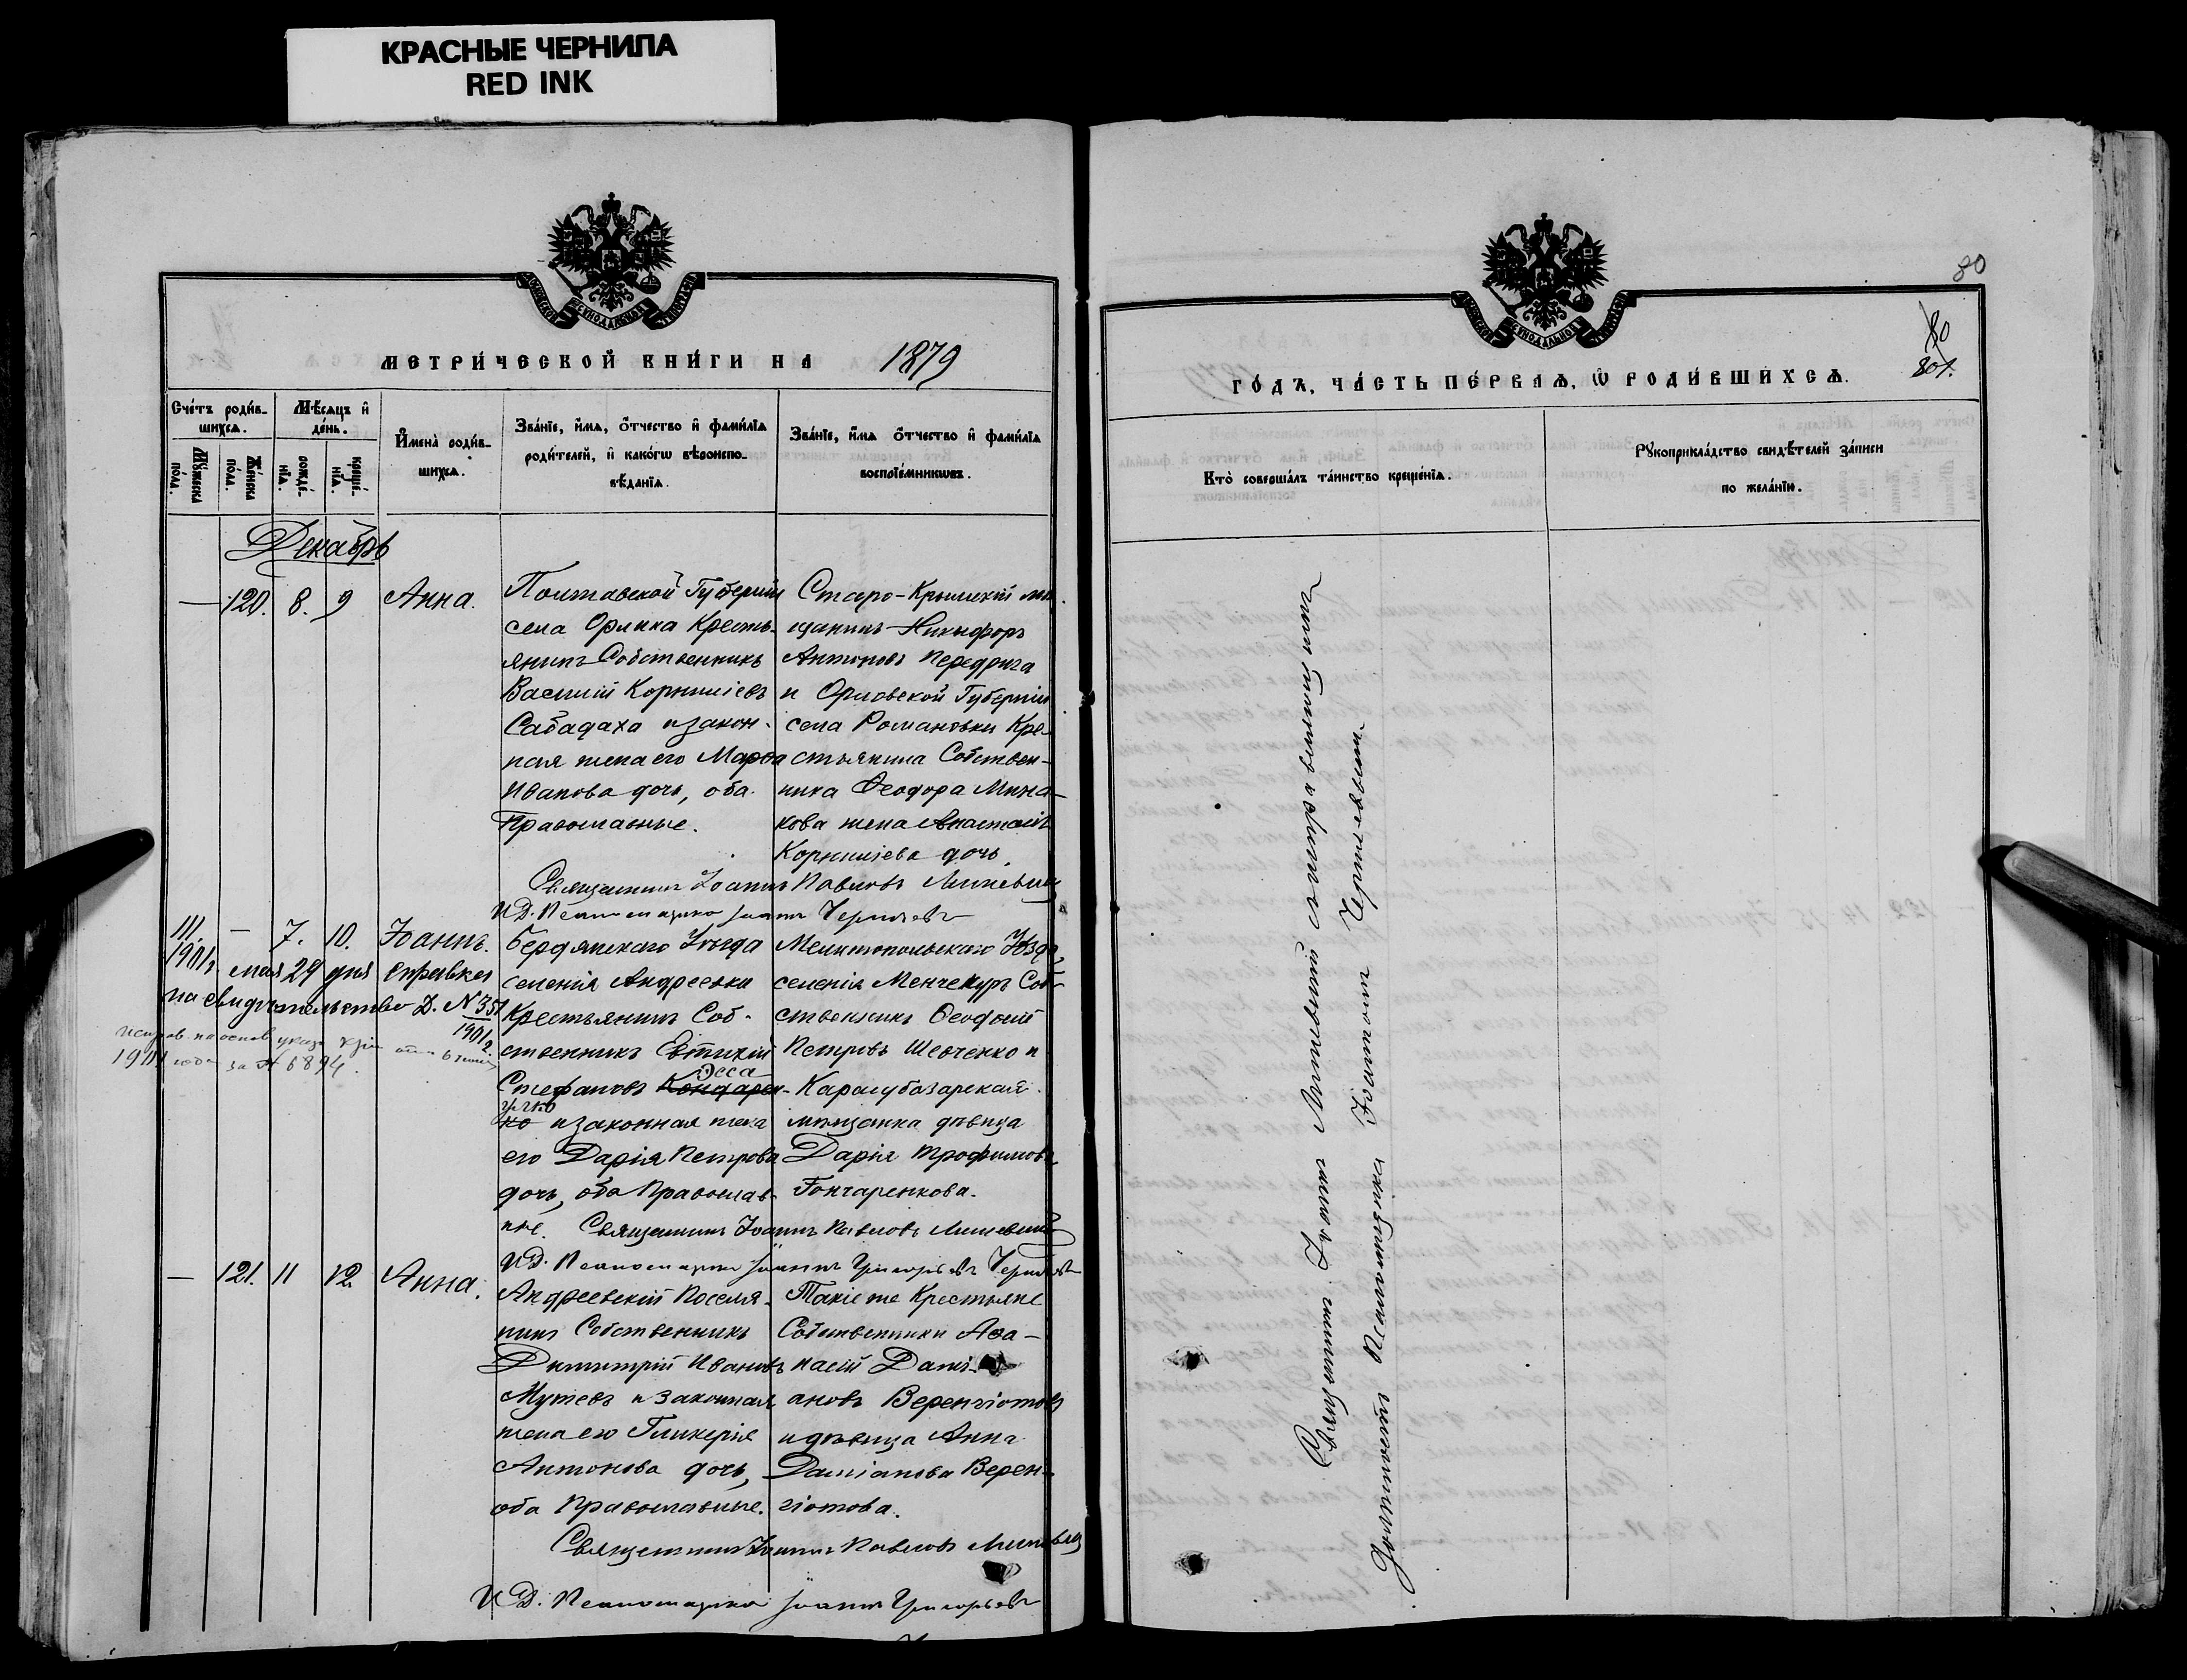 КРАСНЫЕ ЧЕРНИЛА
RED INK
МЕТРИ́ЧЕСКОЙ КНИ́ГИ НА 1879
Сче́тъ роди́в-
шихсѧ.
Мꙋ́жеска
по́ла.
Же́нска
по́ла.
Мѣ́сѧцъ и҆
де́нь.
рожде́-
нїѧ.
креще́-
нїѧ.
И҆мена̀ роди́в-
шихсѧ.
Зва́нїе, и҆́мѧ, ѻ҆́тчество и҆ фами́лїѧ
роди́телей, и҆ како́гѡ вѣроиспо-
вѣ́данїѧ.
Зва́нїе, и҆́мѧ ѻ҆́тчество и҆ фами́лїѧ
воспрїе́мникѡвъ.
Декабрь
— 120. 8. 9 Анна.
Полтавской Губерніи
села Орлика Кресть-
янинъ Собственникъ
Василій Корниліевъ
Сабадаха и закон-
ная жена его Марѳа
Иванова дочь, оба
Православные.
Старо-Крымскій мѣ-
щанинъ Никифоръ
Антоновъ
и Орловской Губерніи
села Романовки Кре-
стьянина Собствен-
ника Ѳеодора Мина-
кова жена Анастасія
Корниліева дочь.
Священникъ Іоаннъ Павловъ
И.Д. Псаломщика Іоаннъ
111. — 7. 10. Іоаннъ.
1901 г. мая 29 дня справка
на свидѣтельство Д. N 351
1901 г.
1901 года за N 6894.
Бердянскаго Уѣзда
селенія Андреевки
Крестьянинъ Соб-
ственникъ Евтихій
Стефановъ Кондарен-
ко и законная жена
его Дарія Петрова
дочь, оба Православ-
ные.
Мелитопольскаго Уѣзда
селенія Менчекуръ Соб-
ственникъ Ѳеодосій
Петровъ Шевченко и
Карасубазарская
мѣщанка дѣвица
Дарія Трофимова
Гончаренкова.
Священникъ Іоаннъ Павловъ
И.Д. Псаломщика Іоаннъ Григорьевъ
— 121. 11 12 Анна.
Андреевскій Поселя-
нинъ Собственникъ
Димитрій Ивановъ
Мутевъ и законная
жена его Гликерія
Антонова дочь,
оба Православные.
Такіе же Крестьяне
Собственники Аѳа-
насій Дамі-
ановъ Веренгіотовъ
и дѣвица Анна
Даміанова Верен-
гіотова.
Священникъ Іоаннъ Павловъ
И.Д. Псаломщика Іоаннъ Григорьевъ
80
80
80/.
ГО́ДЪ, ЧА́СТЬ ПЕ́РВАѦ, Ѡ҆ РОДИ́ВШИХСѦ.
Кто̀ соверша́лъ та́инство креще́нїѧ.
Рꙋкоприкла́дство свидѣ́телей за́писи
по жела́нїю.
Священникъ Іоаннъ
Псаломщика Іоанномъ